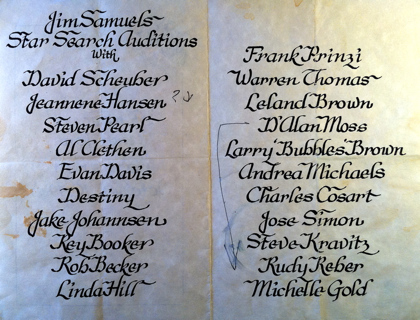 Jim Samuels
Star Search Auditions
With
David Scheuber
Jeannene Hansen ?
Steven Pearl
Al Clethen
Evan Davis
Destiny
Jake Johannsen
Key Booker
Rob Becker
Linda Hill
Frank Prinzi
Warren Thomas
Leland Brown
D'Alan Moss
Larry "Bubbles" Brown
Andrea Michaels
Charles Cosart
Jose Simon
Steve Kravitz
Rudy Reber
Michelle Gold